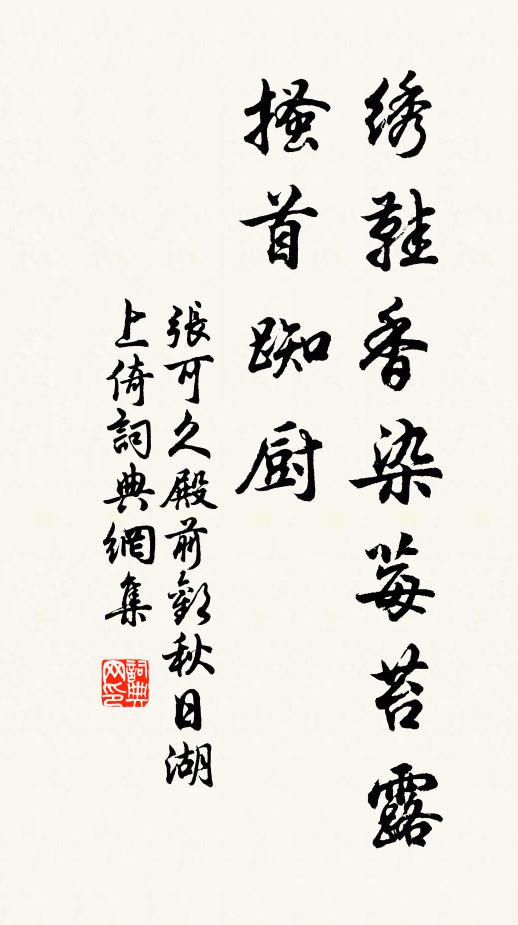 绣鞋香染莓苔露
搔首踟厨
張可久殿前歡秋日湖
上倚詞典網集
詞典网印